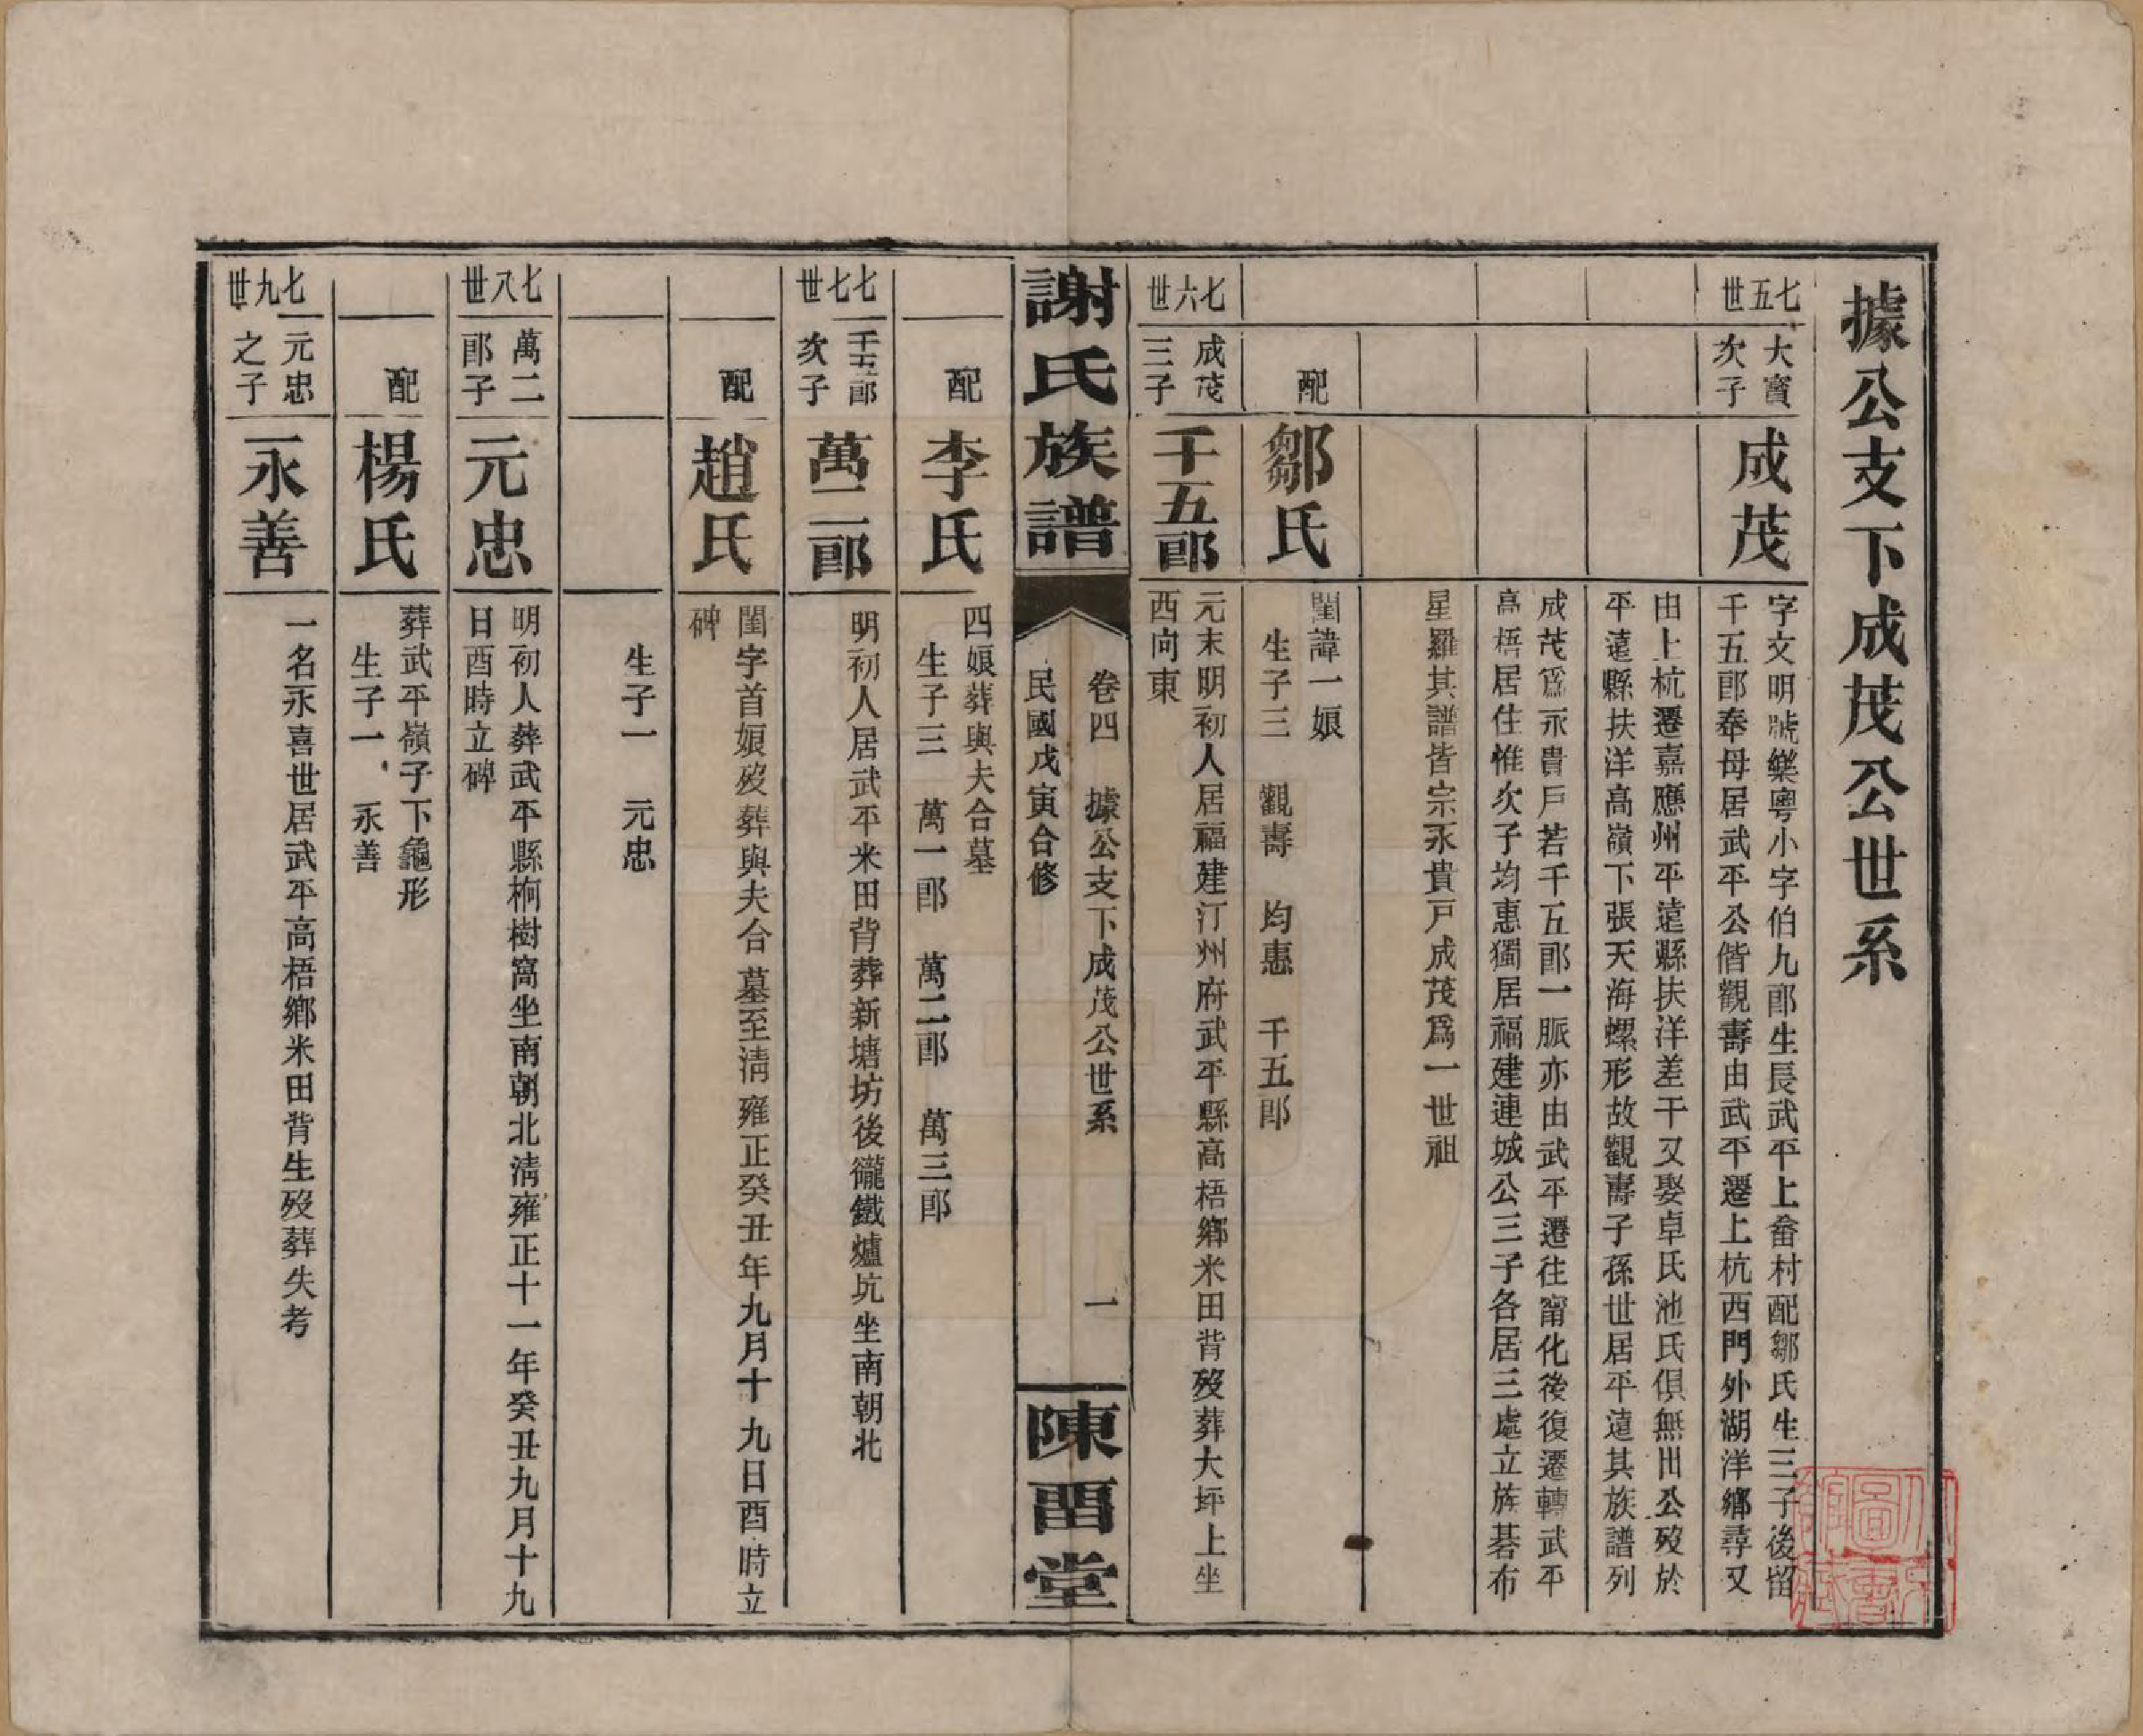 據公支下成茂公世系
七五世
大寶
次子
成茂
字文明號樂粵小字伯九郎生長武平上畲村配鄒氏生三子後留
千五郎奉母居武平公偕觀壽由武平遷上杭西門外湖洋鄉尋又
由上杭遷嘉應州平遠縣扶洋差干又娶卓氏池氏俱無出公歿於
平遠縣扶洋高嶺下張天海螺形故觀壽子孫世居平遠其族譜列
成茂爲永貴戶若千五郎一脈亦由武平遷往甯化後復遷轉武平
高梧居住惟次子均惠獨居福建連城公三子各居三處立族碁布
星羅其譜皆宗永貴戸成茂爲一世祖
配
鄒氏
閨諱一娘
生子三 觀壽 均惠 千五郎
七六世
成茂
三子
千五郎
元末明初人居福建汀州府武平縣高梧鄉米田背歿葬大坪上坐
西向東
謝氏族譜
卷四 據公支下成茂公世系 一
民國戊寅合修
陳畱堂
配
李氏
四娘葬與夫合墓
生子三 萬一郎 萬二郎 萬三郎
七七世
千五郎
次子
萬二郎
明初人居武平米田背葬新塘坊後龓鐵爐坑坐南朝北
配
趙氏
閨字首娘歿葬與夫合墓至清雍正癸丑年九月十九日酉時立
碑
生子一 元忠
七八世
萬二
郎子
元忠
明初人葬武平縣桐樹窩坐南朝北清雍正十一年癸丑九月十九
日酉時立碑
配
楊氏
葬武平嶺子下龜形
生子一 永善
七九世
元忠
之子
永善
一名永喜世居武平高梧鄉米田背生歿葬失考